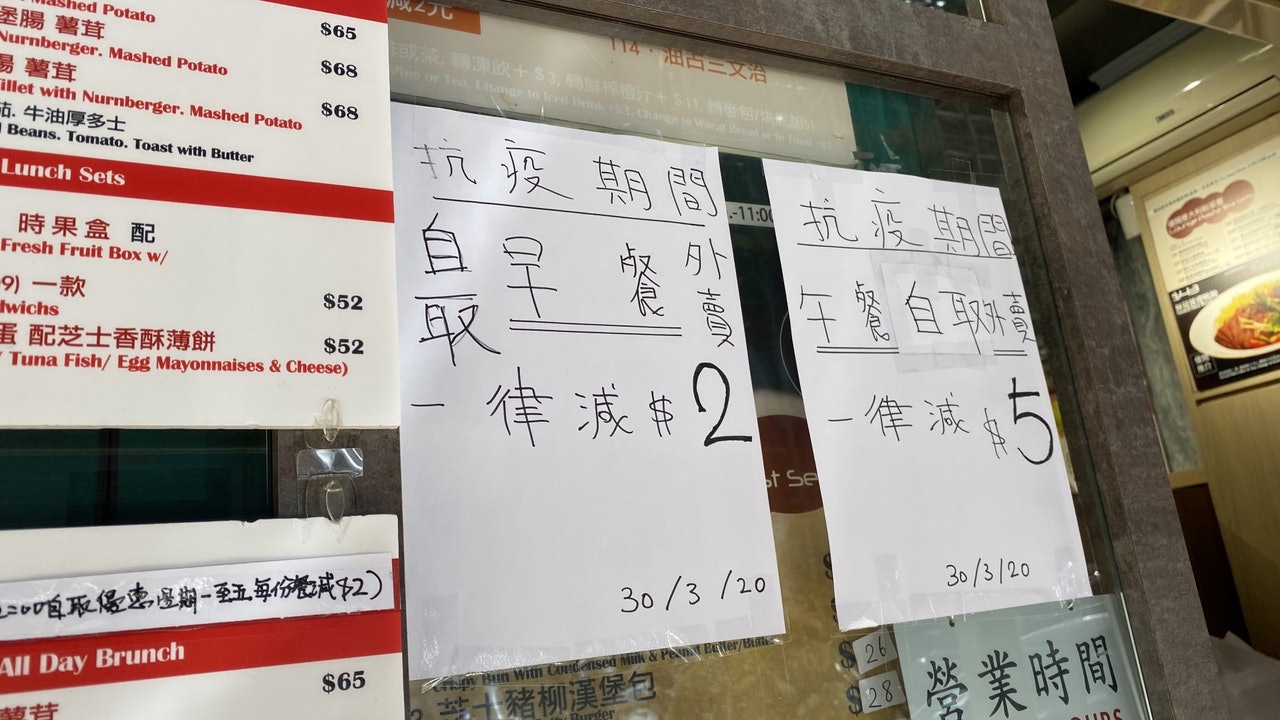 Mashed Potato
堡腸 薯茸
$65
Nurnberger. Mashed Potato
腸 薯茸
$68
fillet with Nurnberger. Mashed Potato
$68
茄. 牛油厚多士
Beans. Tomato. Toast with Butter
Lunch Sets
時果盒 配
Fresh Fruit Box w/
9) 一款
$52
dwichs
蛋 配芝士香酥薄餅
$52
/ Tuna Fish/ Egg Mayonnaises & Cheese)
自取優惠星期一至五每份餐減$2)
All Day Brunch
$65
薯茸
減2元
114．油占三文治
或茶, 轉凍飲+ $3, 轉鮮榨橙汁+ $11, 轉麥包
or Tea, Change to Iced Drink +$3, Change to Wheat Bread or
抗疫期間
自取早餐外賣
一律減$2
30/3/20
-11:00
抗疫期間
午餐自取外賣
一律減$5
30/3/20
st Se
Crispy Bun With Condensed Milk & Peanut Butter/Butter
$26
芝士豬柳漢堡包
$28
Burger
營業時間